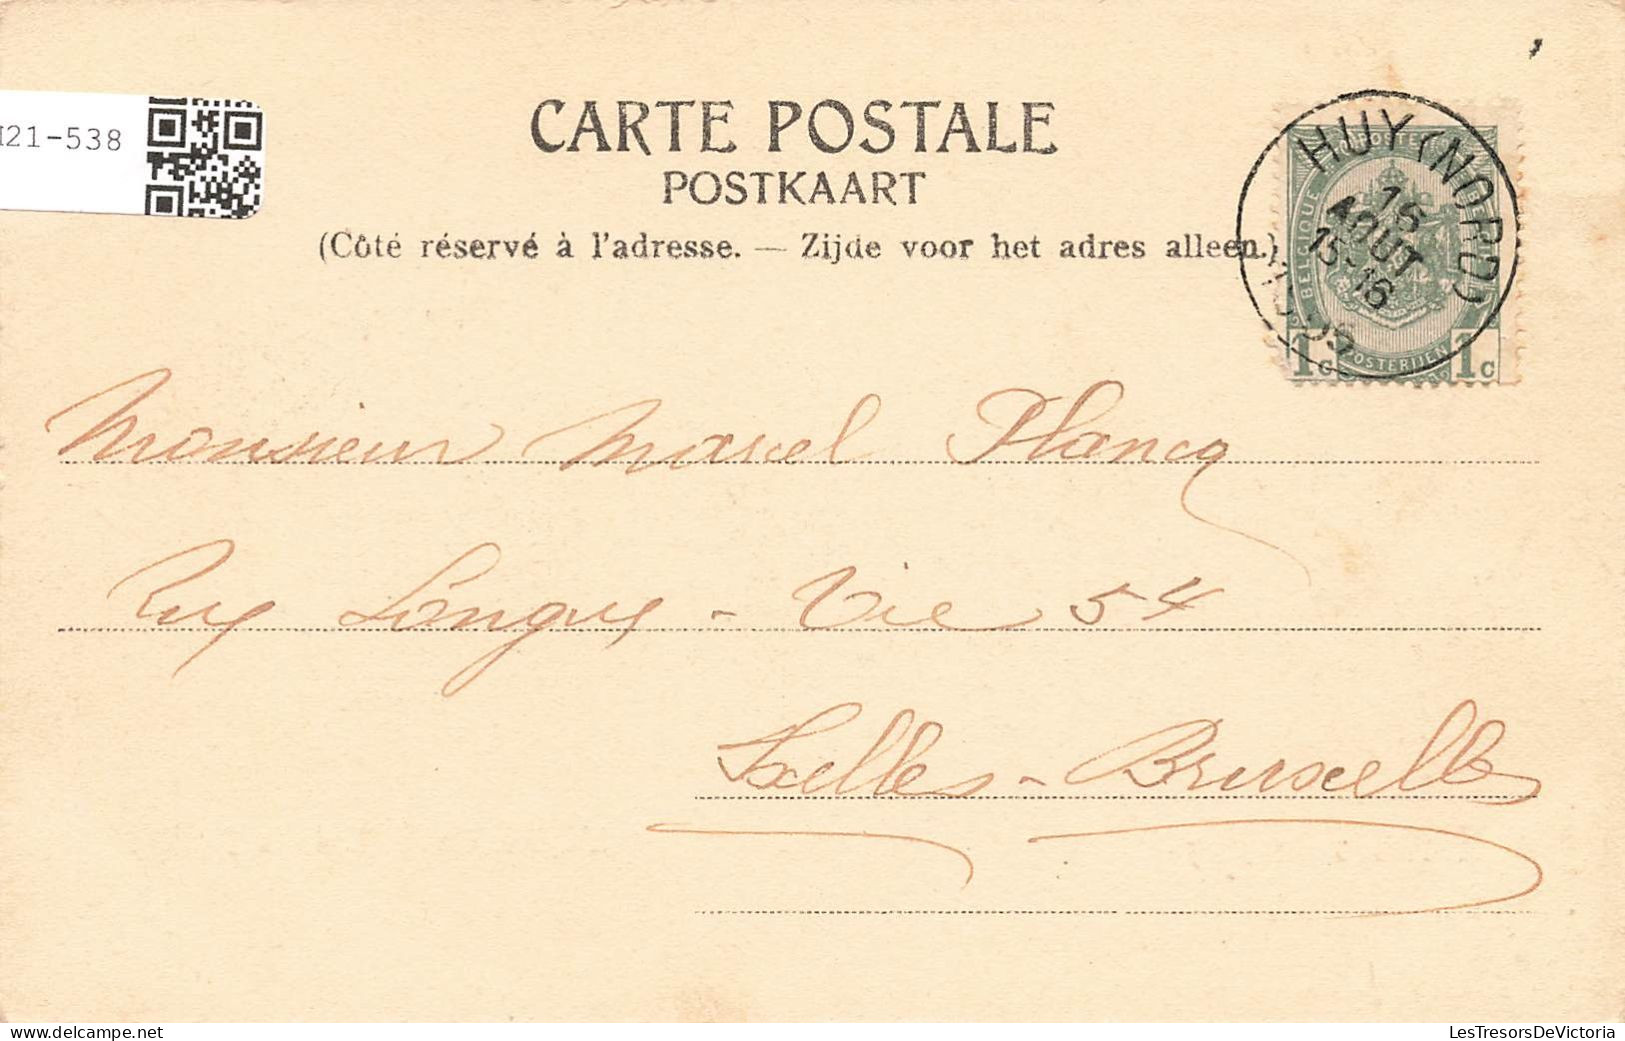 21-538
CARTE POSTALE
POSTKAART
(Côté réservé à l'adresse. — Zijde voor het adres alleen.)
HUY (NORD)
16
AOUT
15-16
BELGIQUE
POSTERIJEN
1c 1c
Monsieur Marcel Plancq
Longue - Vie 54
Ixelles - Bruxelles
LesTresorsDeVictoria